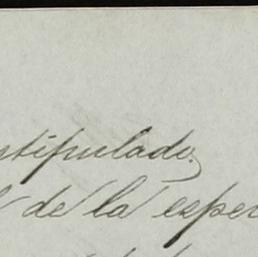 stipulado,
de la esper